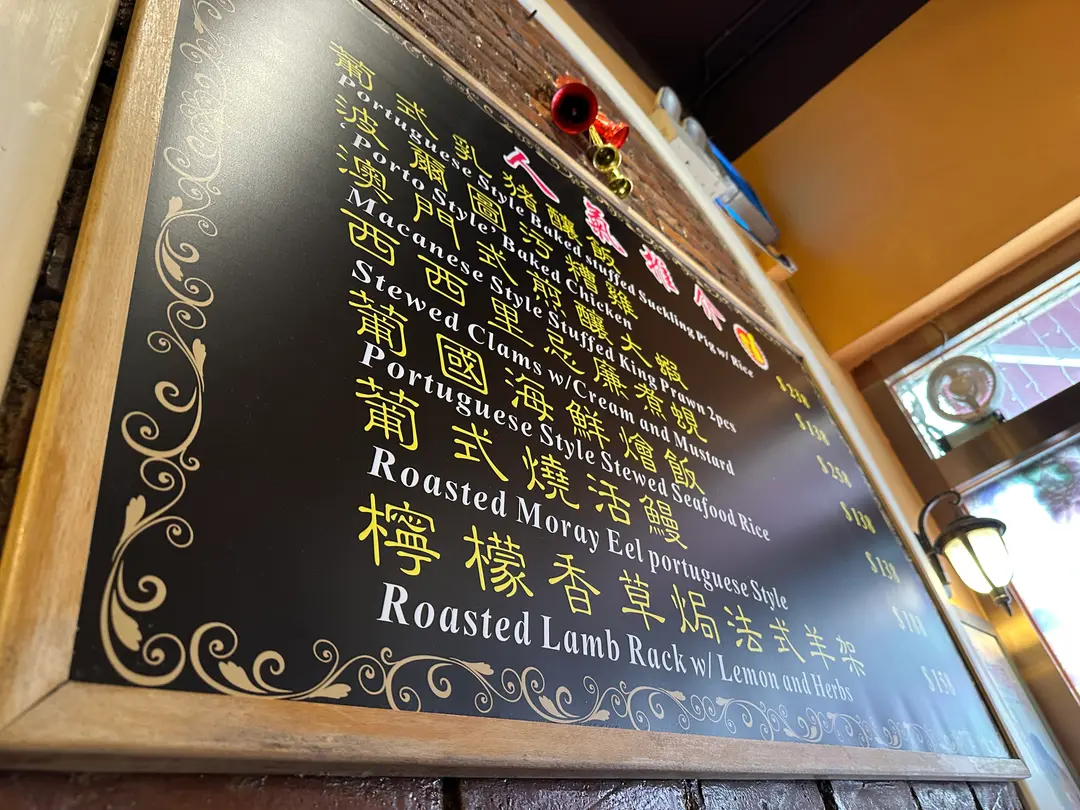 人氣推介
葡式乳豬釀飯
Portuguese Style Baked stuffed Suckling Pig w/ Rice $250
波爾圖汚糟雞
Porto Style' Baked Chicken $130
澳門式煎釀大蝦
Macanese Style Stuffed King Prawn 2pcs $250
西西里忌廉煮蜆
Stewed Clams w/Cream and Mustard $130
葡國海鮮燴飯
Portuguese Style Stewed Seafood Rice $130
葡式燒活鰻
Roasted Moray Eel portuguese Style
檸檬香草焗法式羊架
Roasted Lamb Rack w/ Lemon and Herbs $150